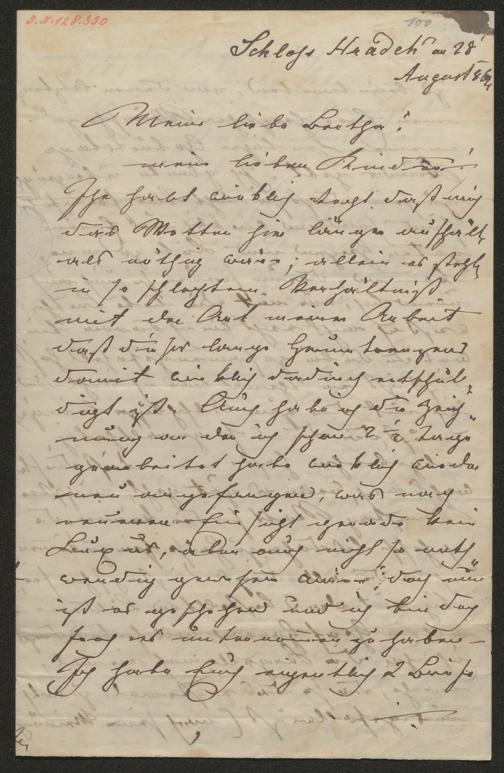 J.N. 128.330
100
Schloss Hradek am 28
August 869
Meine liebe Bertha!
meine lieben Kinder!
Ihr habt wirklich recht daß mich
das Wetter hier länger aufhält
als nöthig wäre; allein es steht
in so schlechtem Verhältniß
mit der Art meiner Arbeit
daß dieser lange
damit wirklich dadurch entschul-
digt ist. Auch habe ich die Zeich-
nung an der ich schon 2 ½ Tage
gearbeitet habe wirklich wieder
neu angefangen, was nach
Einsicht gerade kein
Luxus, aber auch nicht so noth
wendig gewesen wäre; doch nun
ist es geschehen und ich bin doch
froh es unternommen zu haben –
Ich habe Euch eigentlich 2 Briefe